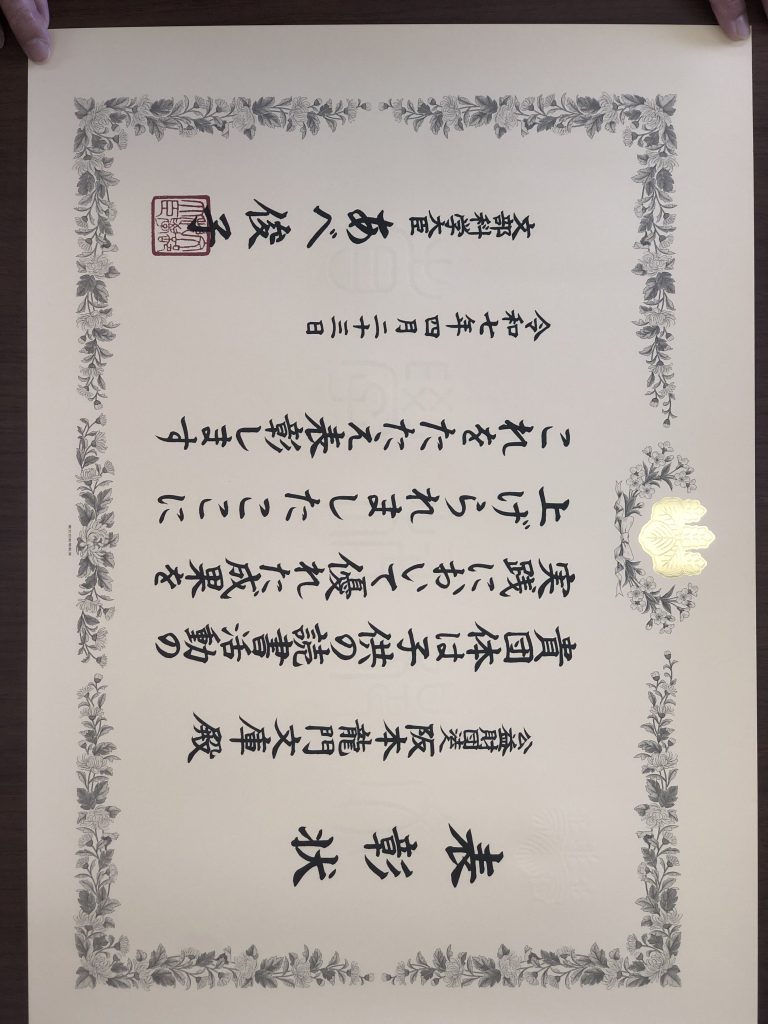 表彰状
公益財団法人阪本龍門文庫殿
貴団体は子供の読書活動の
実践において優れた成果を
上げられましたここに
これをたたえ表彰します
令和七年四月二十三日
文部科学大臣 あべ俊子